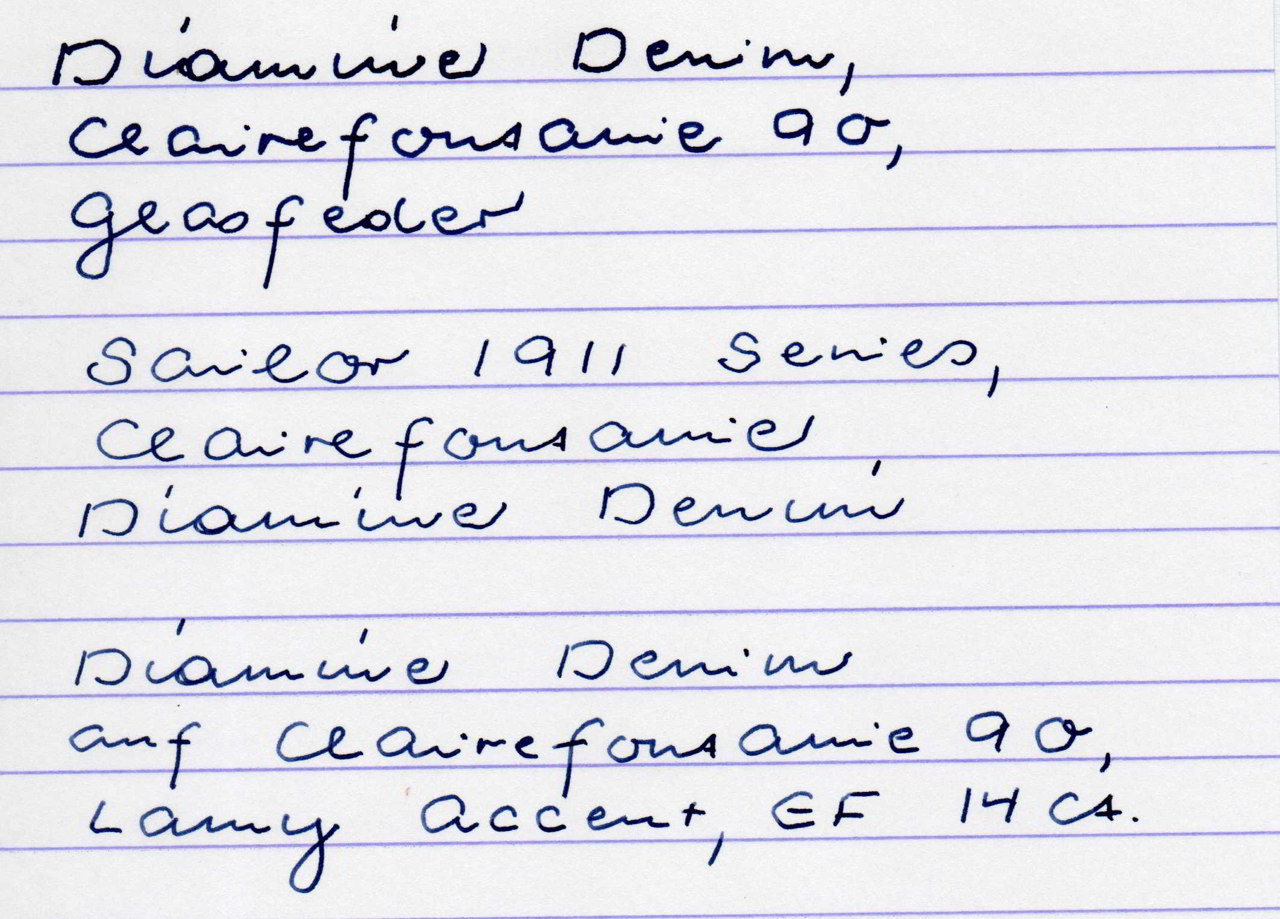 Diamine Denim,
Clairefontaine 90,
Glasfeder
Sailor 1911 Series,
Clairefontaine,
Diamine Denim
Diamine Denim
auf Clairefontaine 90,
Lamy accent, EF 14 Ct.